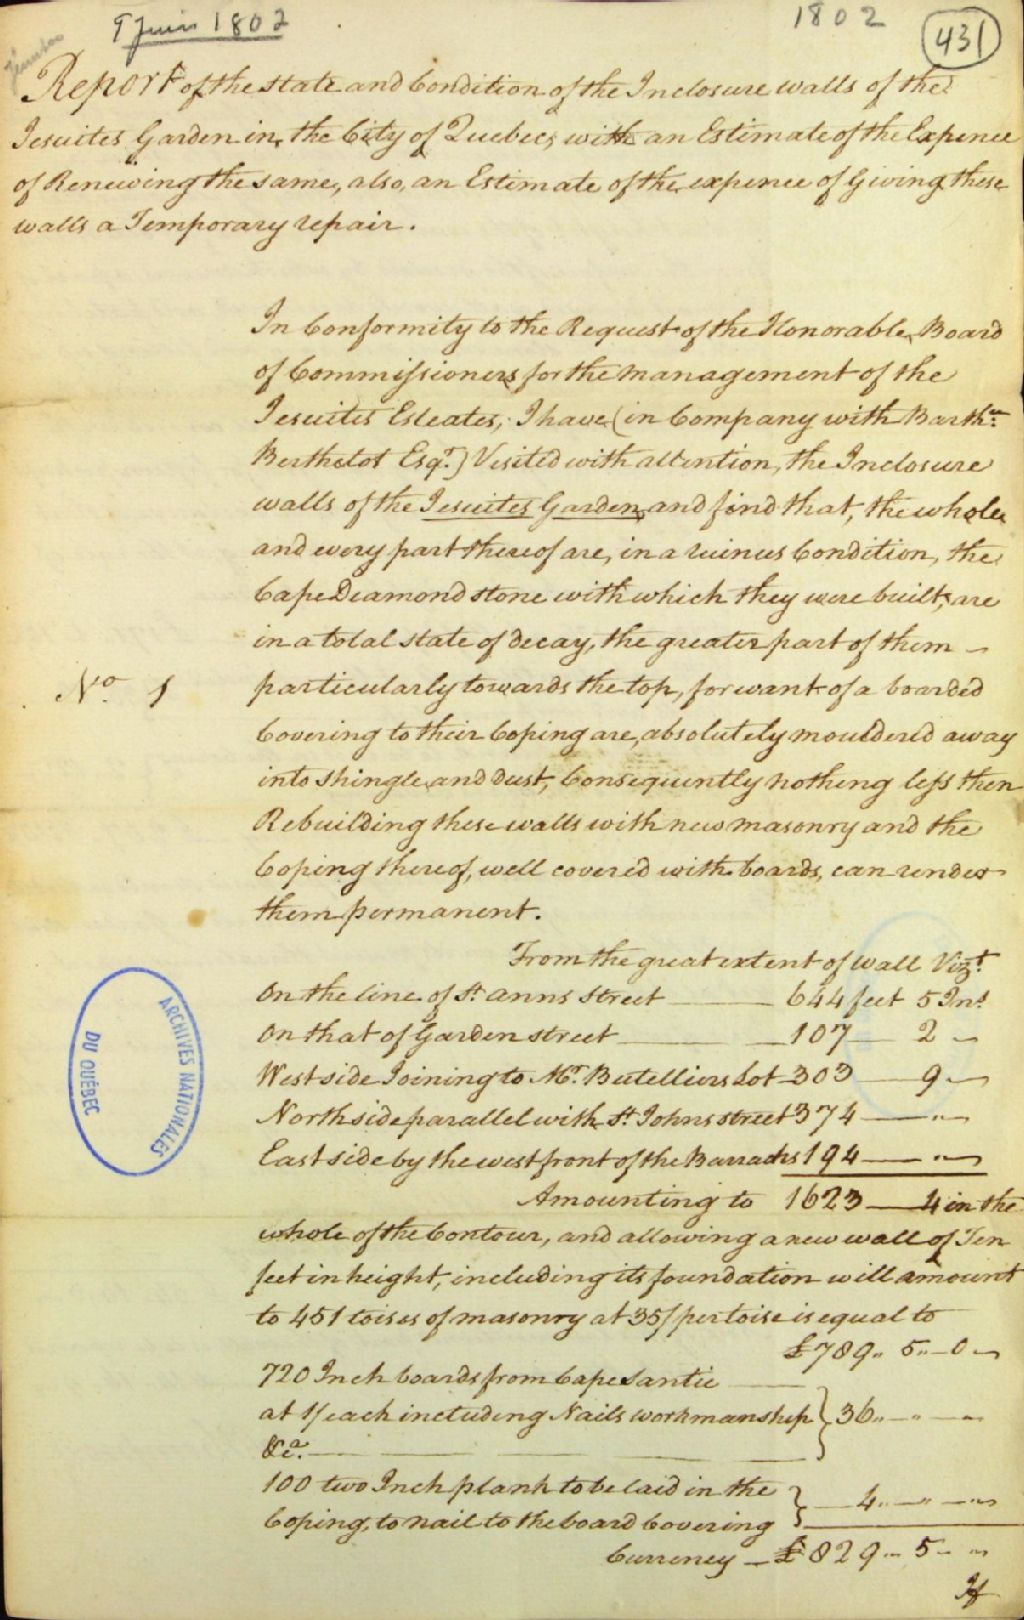 9 Juin 1802
1802
431
Report of the state and Condition of the Inclosure walls of the
Jesuites Garden in, the City of Quebec, with an Estimate of the Expence
of Renewing the same, also, an Estimate of the expence of Giving these
walls a Temporary repair.
In Conformity to the Request of the Honorable Board
of Commissioners for the management of the
Jesuites Esteates, I have (in Company with Barthw.
Berthelot Esqr.) Visited with attention, the Inclosure
walls of the Jesuites Garden, and find that, the whole
and every part thereof are, in a ruinus Condition, the
Cape Deamond stone with which they were built, are
in a total state of decay, the greater part of them
No. 1
particularly towards the top, for want of a boarded
Covering to their Coping are, absolutely mouldered away
into shingle and dust, Consequently nothing less then
Rebuilding these walls with new masonry and the
Coping thereof, well covered with boards, can render
them permanent.
From the great extent of wall Vizt.
On the line of St. anns street 644 feet 5 Ins
On that of Garden street 107 — 2 —
West side Joining to Mr. Buteillers Lot 303 — 9 —
North side parallel with St. Johns street 374 — " —
East side by the west front of the Barracks 194 — " —
Amounting to 1623 — 4 in the
whole of the Contour, and allowing a new wall of Ten
feet in height, including its foundation will amount
to 451 toises of masonry at 35/ per toise is equal to
£789 " 5 " 0 —
720 Inch boards from Cape Santie
at 1/ each including Nails workmanship } 36 " — " —
&ca.
100 two Inch plank to be laid in the
Coping, to nail to the board Covering } 4 " — " — "
Currency — £829 " 5 — "
If
ARCHIVES NATIONALES
DU QUÉBEC